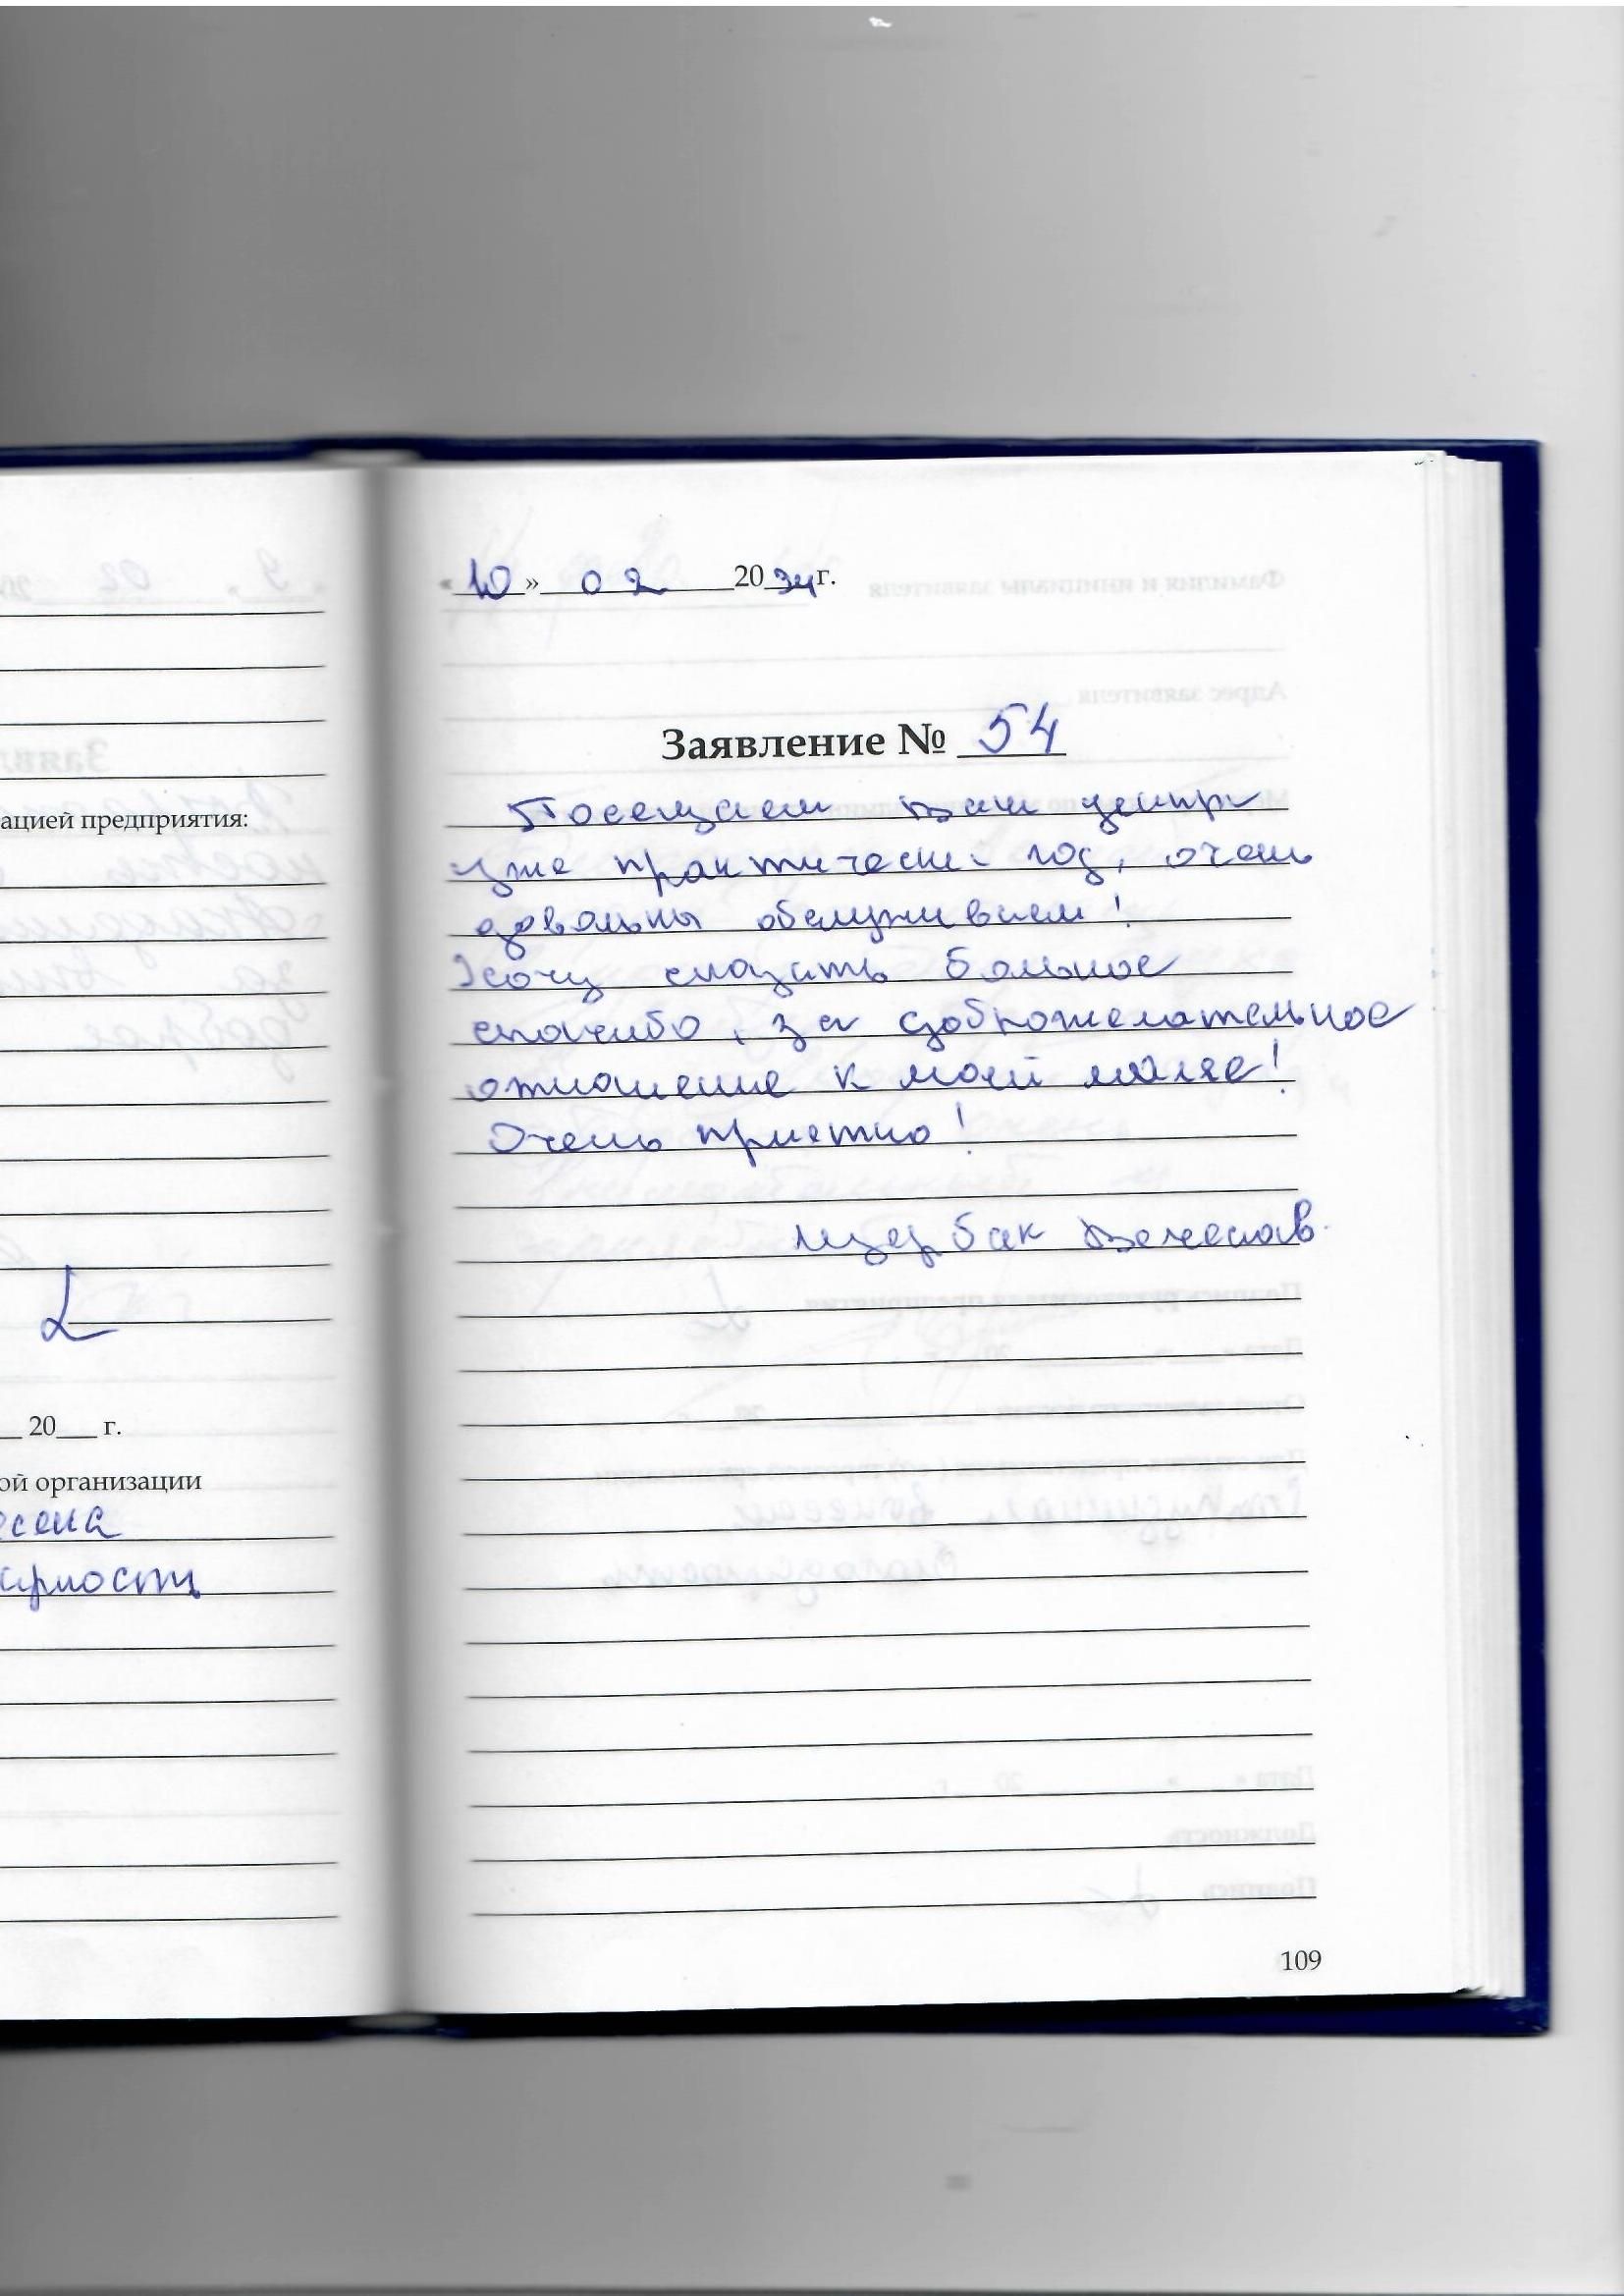 ацией предприятия:
20___ г.
ой организации
есена
арность
«10» 02 2024 г.
Заявление № 54
Посещаем Ваш центр
уже практически год, очень
довольны обслуживаем!
Хочу сказать большое
спасибо, за доброжелательное
отношение к моей маме!
Очень приятно!
Щербак Вячеслав.
109